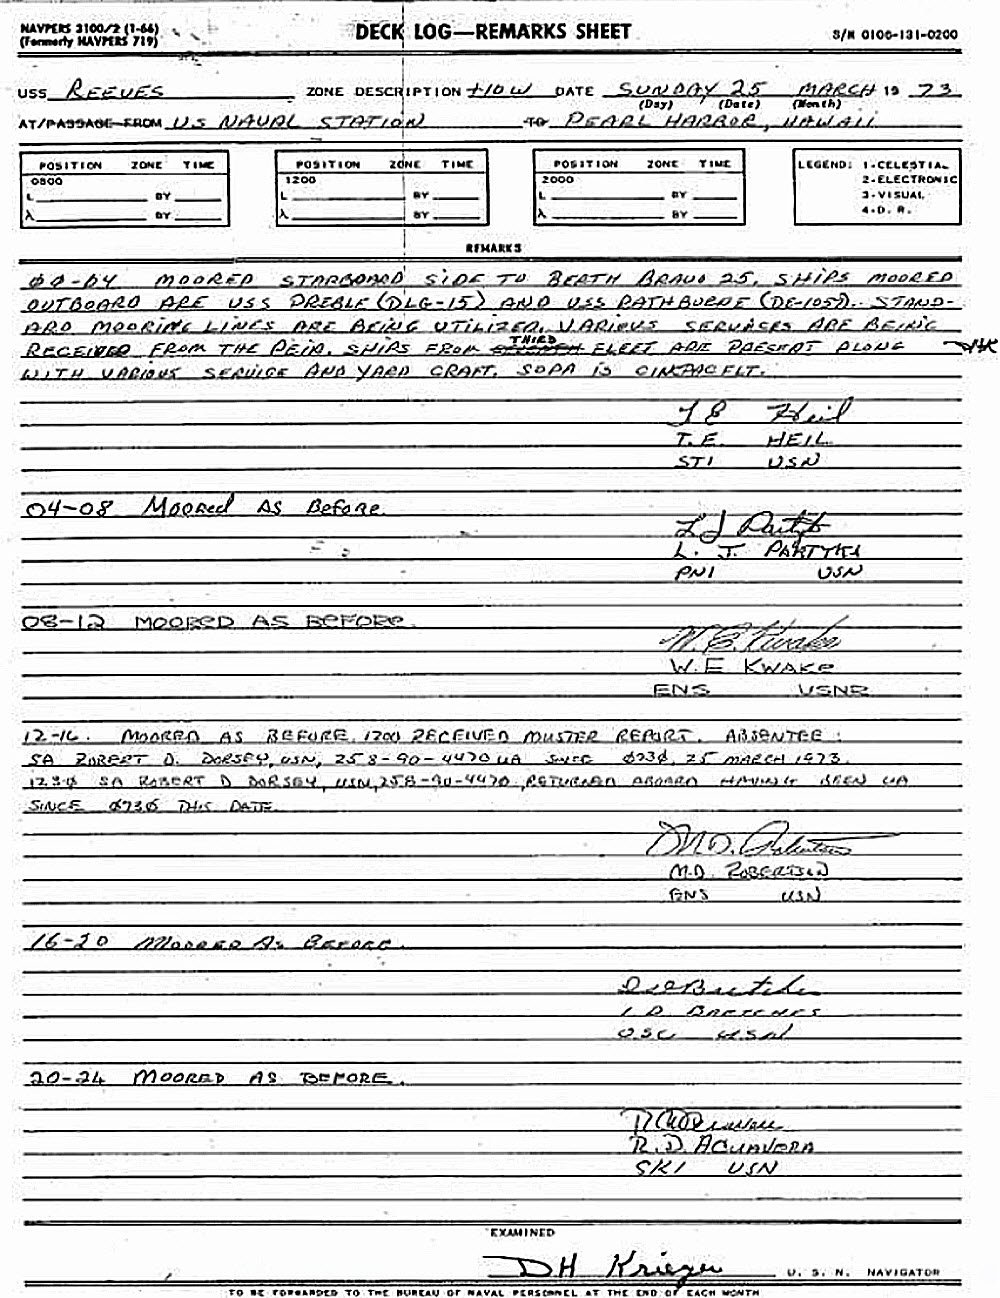 NAVPERS 3100/2 (1-66)
(Formerly NAVPERS 719)
DECK LOG—REMARKS SHEET
S/N 0106-131-0200
USS REEVES ZONE DESCRIPTION +10W DATE SUNDAY 25 MARCH 19 73
(Day) (Date) (Month)
AT/PASSAGE FROM US NAVAL STATION TO PEARL HARBOR, HAWAII
POSITION ZONE TIME POSITION ZONE TIME POSITION ZONE TIME LEGEND: 1-CELESTIAL
0800 1200 2000 2-ELECTRONIC
L BY L BY L BY 3-VISUAL
λ BY λ BY λ BY 4-D. R.
REMARKS
00-04 MOORED STARBOARD SIDE TO BERTH BRAVO 25. SHIPS MOORED
OUTBOARD ARE USS PREBLE (DLG-15) AND USS RATHBURNE (DE-1057). STAND-
ARD MOORING LINES ARE BEING UTILIZED. VARIOUS SERVICES ARE BEING
RECEIVED FROM THE PEIR. SHIPS FROM THIRD FLEET ARE PRESENT ALONG
WITH VARIOUS SERVICE AND YARD CRAFT. SOPA IS CINCPACFLT.
T E Heil
T. E. HEIL
ST1 USN
04-08 Moored AS Before.
L J Partyka
L. J. PARTYKA
PN1 USN
08-12 MOORED AS BEFORE.
W. E. Kwake
W. E KWAKE
ENS USNR
12-16. MOORED AS BEFORE. 1200 RECEIVED MUSTER REPORT. ABSENTEE:
SA ROBERT D. DORSEY, USN, 258-90-4470 UA SINCE 0730, 25 MARCH 1973.
1230 SA ROBERT D DORSEY, USN, 258-90-4470, RETURNED ABOARD HAVING BEEN UA
SINCE 0730 THIS DATE.
M.D. Robertson
M.D. ROBERTSON
ENS USN
16-20 MOORED AS BEFORE.
OSC USN
20-24 MOORED AS BEFORE.
R. D. AGUAVERA
SK1 USN
EXAMINED
DH Krieger U. S. N. NAVIGATOR
TO BE FORWARDED TO THE BUREAU OF NAVAL PERSONNEL AT THE END OF EACH MONTH